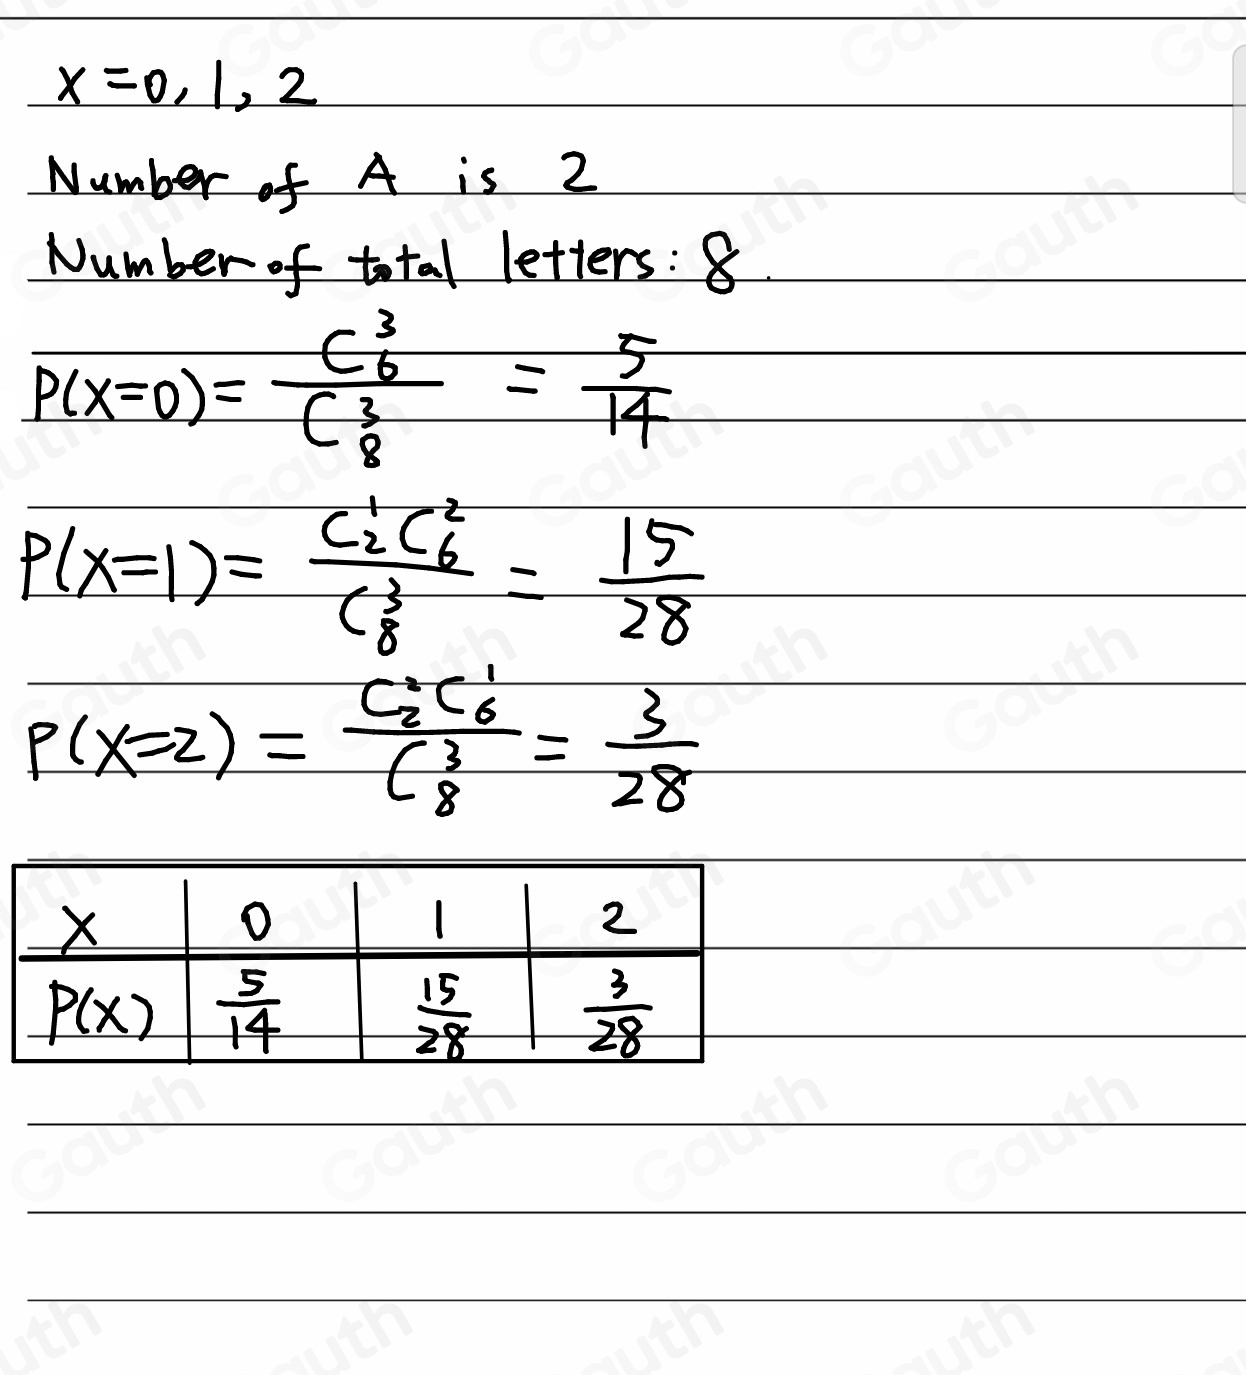 x = 0, 1, 2
Number of A is 2
Number of total letters: 8.
P(X=0) = C₆³ / C₈³ = 5/14
P(X=1) = C₂¹ C₆² / C₈³ = 15/28
P(X=2) = C₂² C₆¹ / C₈³ = 3/28
X 0 1 2
P(X) 5/14 15/28 3/28
Gauth